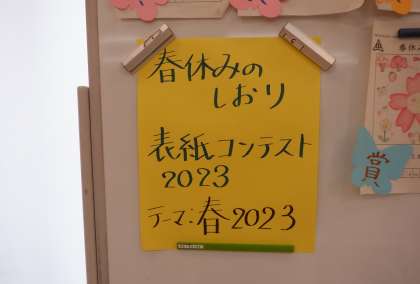 春休みの
しおり
表紙コンテスト
2023
テーマ:春2023
春休み
賞